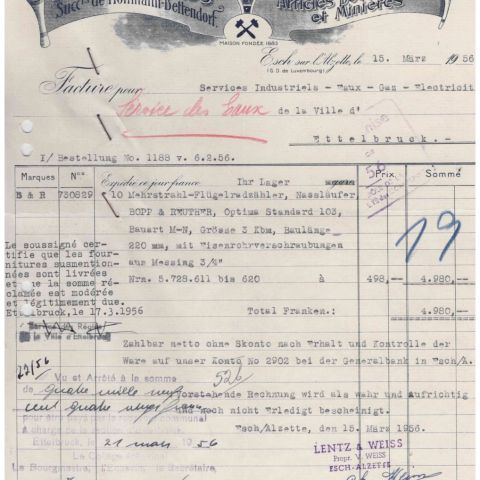 Succ. de Hoffmann-Bettendorf.
et Minières
MAISON FONDÉE 1883
Esch-sur-l'Alzette, le 15. März 1956
(G.D. de Luxembourg)
Facture pour Services Industriels - Eaux - Gaz - Electricit
Service des Eaux de la Ville d'
Ettelbruck.
I/ Bestellung No. 1188 v. 6.2.56.
Marques Nos Expédié ce jour franco Ihr Lager Prix Somme
B & R 730829 10 Mehrstrahl-Flügelradzähler, Nassläufer,
BOPP & REUTHER, Optima Standard 103,
Bauart M-N, Grösse 3 Kbm, Baulänge
220 mm, mit Eisenrohrverschraubungen
aur Messing 3/4"
Nrn. 5.728.611 bis 620 à 498,-- 4.980,--
19
Le soussigné cer-
tifie que les four-
nitures susmention-
nées sont livrées
et que la somme ré-
clamée est modérée
et légitimement due.
Ettelbruck, le 17.3.1956
Total Franken: 4.980,--
la Ville d'Ettelbruck
Zahlbar netto ohne Skonto nach Erhalt und Kontrolle der
Ware auf unser Konto No 2902 bei der Generalbank in Esch/A.
22/56
526
Vu et Arrêté à la somme
de quatre mille neuf
cent quatre vingt francs
vorstehende Rechnung wird als wahr und aufrichtig
und noch nicht Erledigt bescheinigt.
Esch/Alzette, den 15. März 1956.
Ettelbruck, le 21 mars 1956
Le Collège échevinal
Le Bourgmestre, l'Echevin, le Secrétaire,
LENTZ & WEISS
Propr. V. WEISS
ESCH-ALZETTE